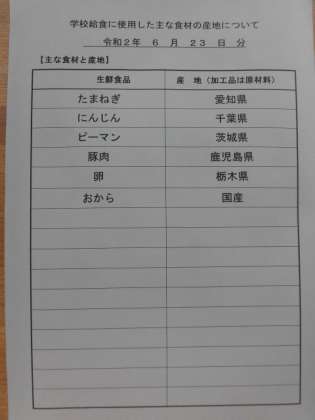 学校給食に使用した主な食材の産地について
令和２年　６　月　２３　日　分
【主な食材と産地】
生鮮食品　産　地（加工品は原材料）
たまねぎ　愛知県
にんじん　千葉県
ピーマン　茨城県
豚肉　鹿児島県
卵　栃木県
おから　国産